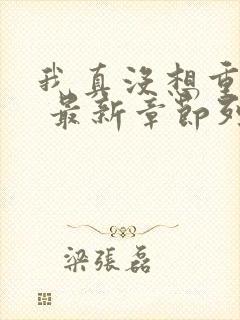 我真没想重
最新章節列
梁張磊